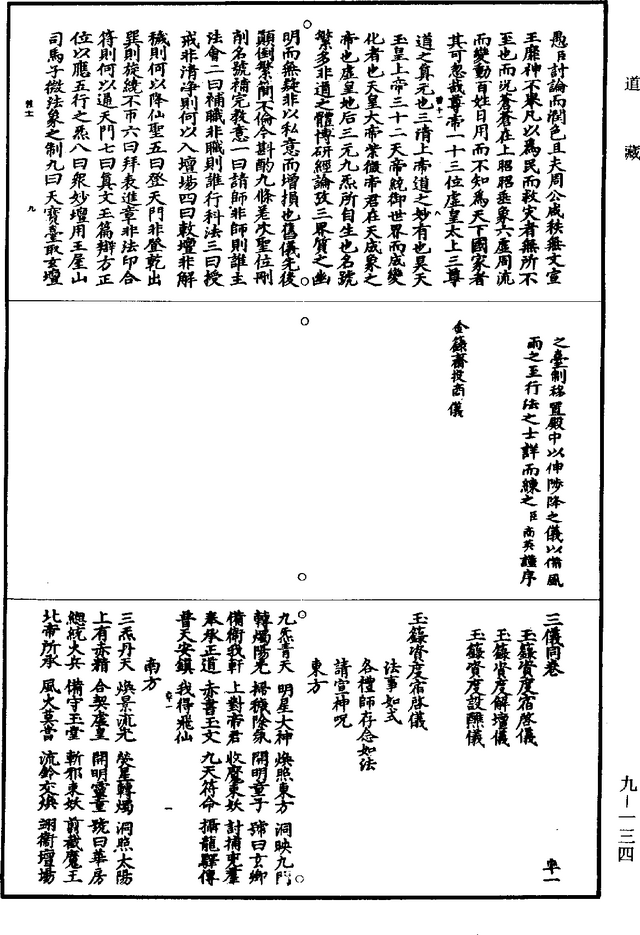 道藏
愚臣討論而潤色且夫周公咸秩無文宣
王靡神不舉凡以為民而救灾者無所不
至也而況蒼蒼在上昭昭垂象六虛周流
而變動百姓日用而不知為天下國家者
其可忽哉尊帝一十三位虛皇太上三尊
道之真元也三清上帝道之妙有也昊天
玉皇上帝三十二天帝統御世界而成變
化者也天皇大帝紫微帝君在天成象之
帝也虛皇地后三元九炁所自生也名號
繁多非道之體博研經論攷三界質之幽
明而無疑非以私意而增損也舊儀先後
顛倒繁簡不倫今斟酌九條差次聖位刪
削名號補完教意一曰請師非師則誰主
法會二曰補職非職則誰行科法三曰授
戒非清淨則何以入壇場四曰敕壇非解
穢則何以降仙聖五曰登天門非登乾出
巽則旋繞不帀六曰拜表進章非法印合
符則何以通天門七曰真文玉篇辯方正
位以應五行之炁八曰衆妙壇用王屋山
司馬子微法象之制九曰天寶臺取玄壇
之臺制移置殿中以伸陟降之儀以備風
雨之至行法之士詳而練之臣商英謹序
金籙齋投簡儀
三儀同卷
玉籙資度宿啓儀
玉籙資度解壇儀
玉籙資度設醮儀
玉籙資度宿啓儀
法事如式
各禮師存念如法
請宣神呪
東方
九炁青天 明星大神 煥照東方 洞映九門
轉燭陽光 掃穢除氛 開明童子 號曰玄卿
備衛我軒 上對帝君 收魔束妖 討捕兇羣
奉承正道 赤書玉文 九天符命 攝龍驛傳
普天安鎮 我得飛仙
南方
三炁丹天 煥景流光 熒星轉燭 洞照太陽
上有赤精 合契虛皇 開明靈童 號曰華房
總統火兵 備守玉堂 斬邪束妖 剪截魔王
北帝所承 風火莫當 流鈴交煥 翊衛壇場
九一一三四